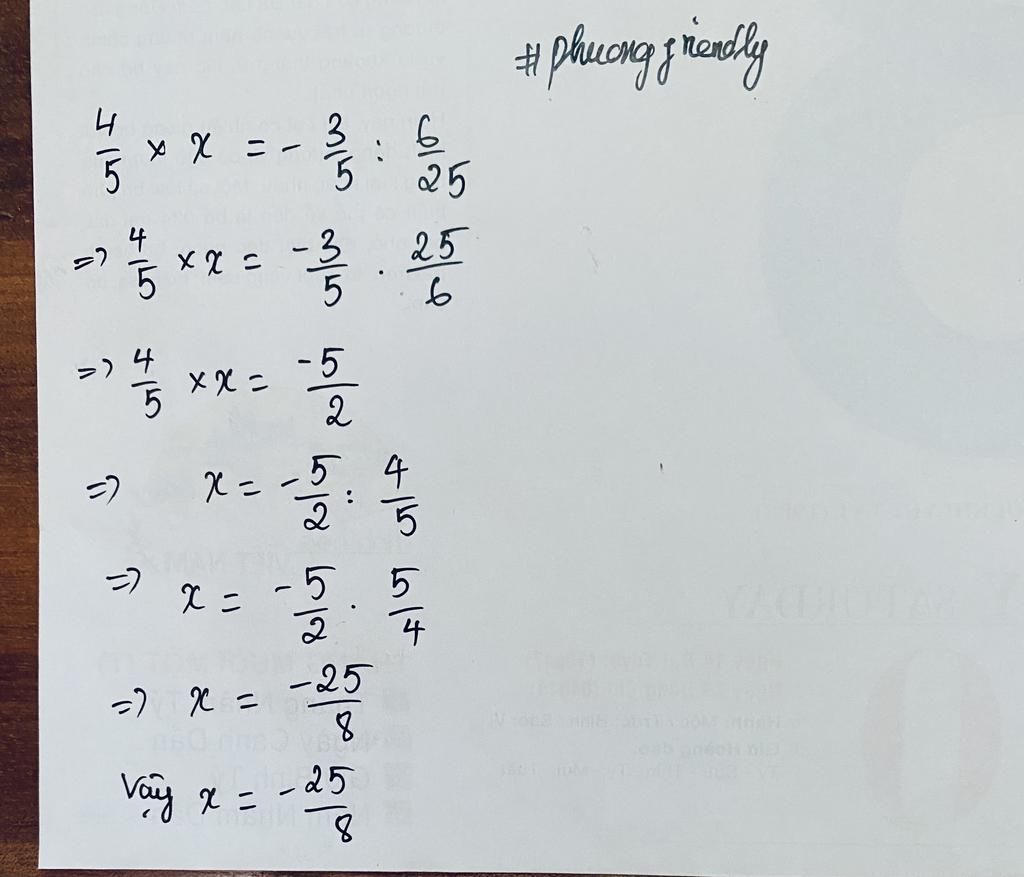 #phuongfriendly
4/5 × x = - 3/5 : 6/25
=> 4/5 × x = -3/5 . 25/6
=> 4/5 × x = -5/2
=> x = -5/2 : 4/5
=> x = -5/2 . 5/4
=> x = -25/8
Vậy x = -25/8